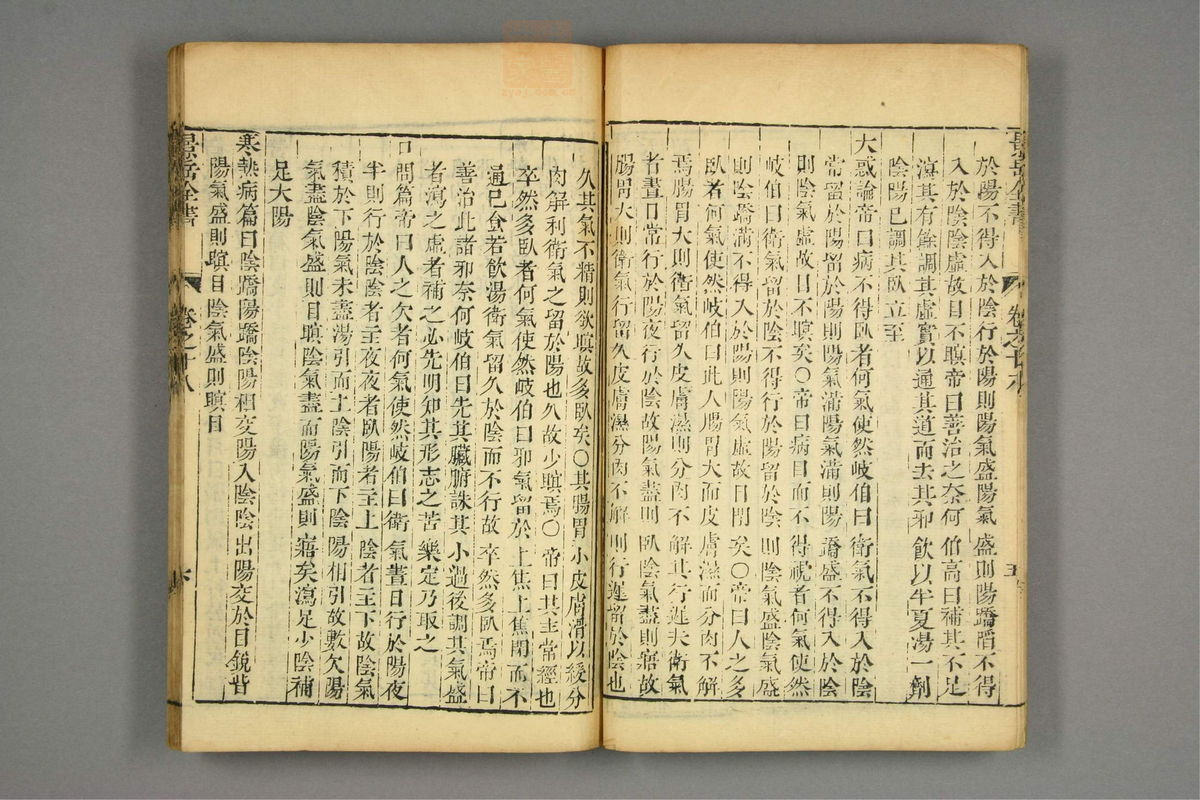 景岳全書
卷之十八
五
於陽不得入於陰行於陽則陽氣盛陽氣盛則陽蹻䧟不得
入於陰陰虛故目不瞑帝曰善治之奈何伯高曰補其不足
瀉其有餘調其虛實以通其道而去其邪飲以半夏湯一劑
陰陽已調其臥立至
大惑論帝曰病不得臥者何氣使然岐伯曰衛氣不得入於陰
常留於陽留於陽則陽氣滿陽氣滿則陽蹻盛不得入於陰
則陰氣虛故目不瞑矣○帝曰病目而不得視者何氣使然
岐伯曰衛氣留於陰不得行於陽留於陰則陰氣盛陰氣盛
則陰蹻滿不得入於陽則陽氣虛故目閉矣○帝曰人之多
臥者何氣使然岐伯曰此人腸胃大而皮膚濕而分肉不解
焉腸胃大則衛氣留久皮膚濕則分肉不解其行遲夫衛氣
者晝日常行於陽夜行於陰故陽氣盡則臥陰氣盡則寤故
腸胃大則衛氣行留久皮膚濕分肉不解則行遲留於陰也
久其氣不精則欲瞑故多臥矣○其腸胃小皮膚滑以緩分
肉解利衛氣之留於陽也久故少瞑焉○帝曰其主常經也
卒然多臥者何氣使然岐伯曰邪氣留於上焦上焦閉而不
通已食若飲湯衛氣留久於陰而不行故卒然多臥焉帝曰
善治此諸邪奈何岐伯曰先其臟腑誅其小過後調其氣盛
者瀉之虛者補之必先明知其形志之苦樂定乃取之
口問篇帝曰人之欠者何氣使然岐伯曰衛氣晝日行於陽夜
半則行於陰陰者主夜夜者臥陽者主上陰者主下故陰氣
積於下陽氣未盡陽引而上陰引而下陰陽相引故數欠陽
氣盡陰氣盛則目瞑陰氣盡而陽氣盛則寤矣瀉足少陰補
足太陽
寒熱病篇曰陰蹻陽蹻陰陽相交陽入陰陰出陽交於目銳眥
陽氣盛則瞋目陰氣盛則瞑目
景岳全書
卷之十八
六